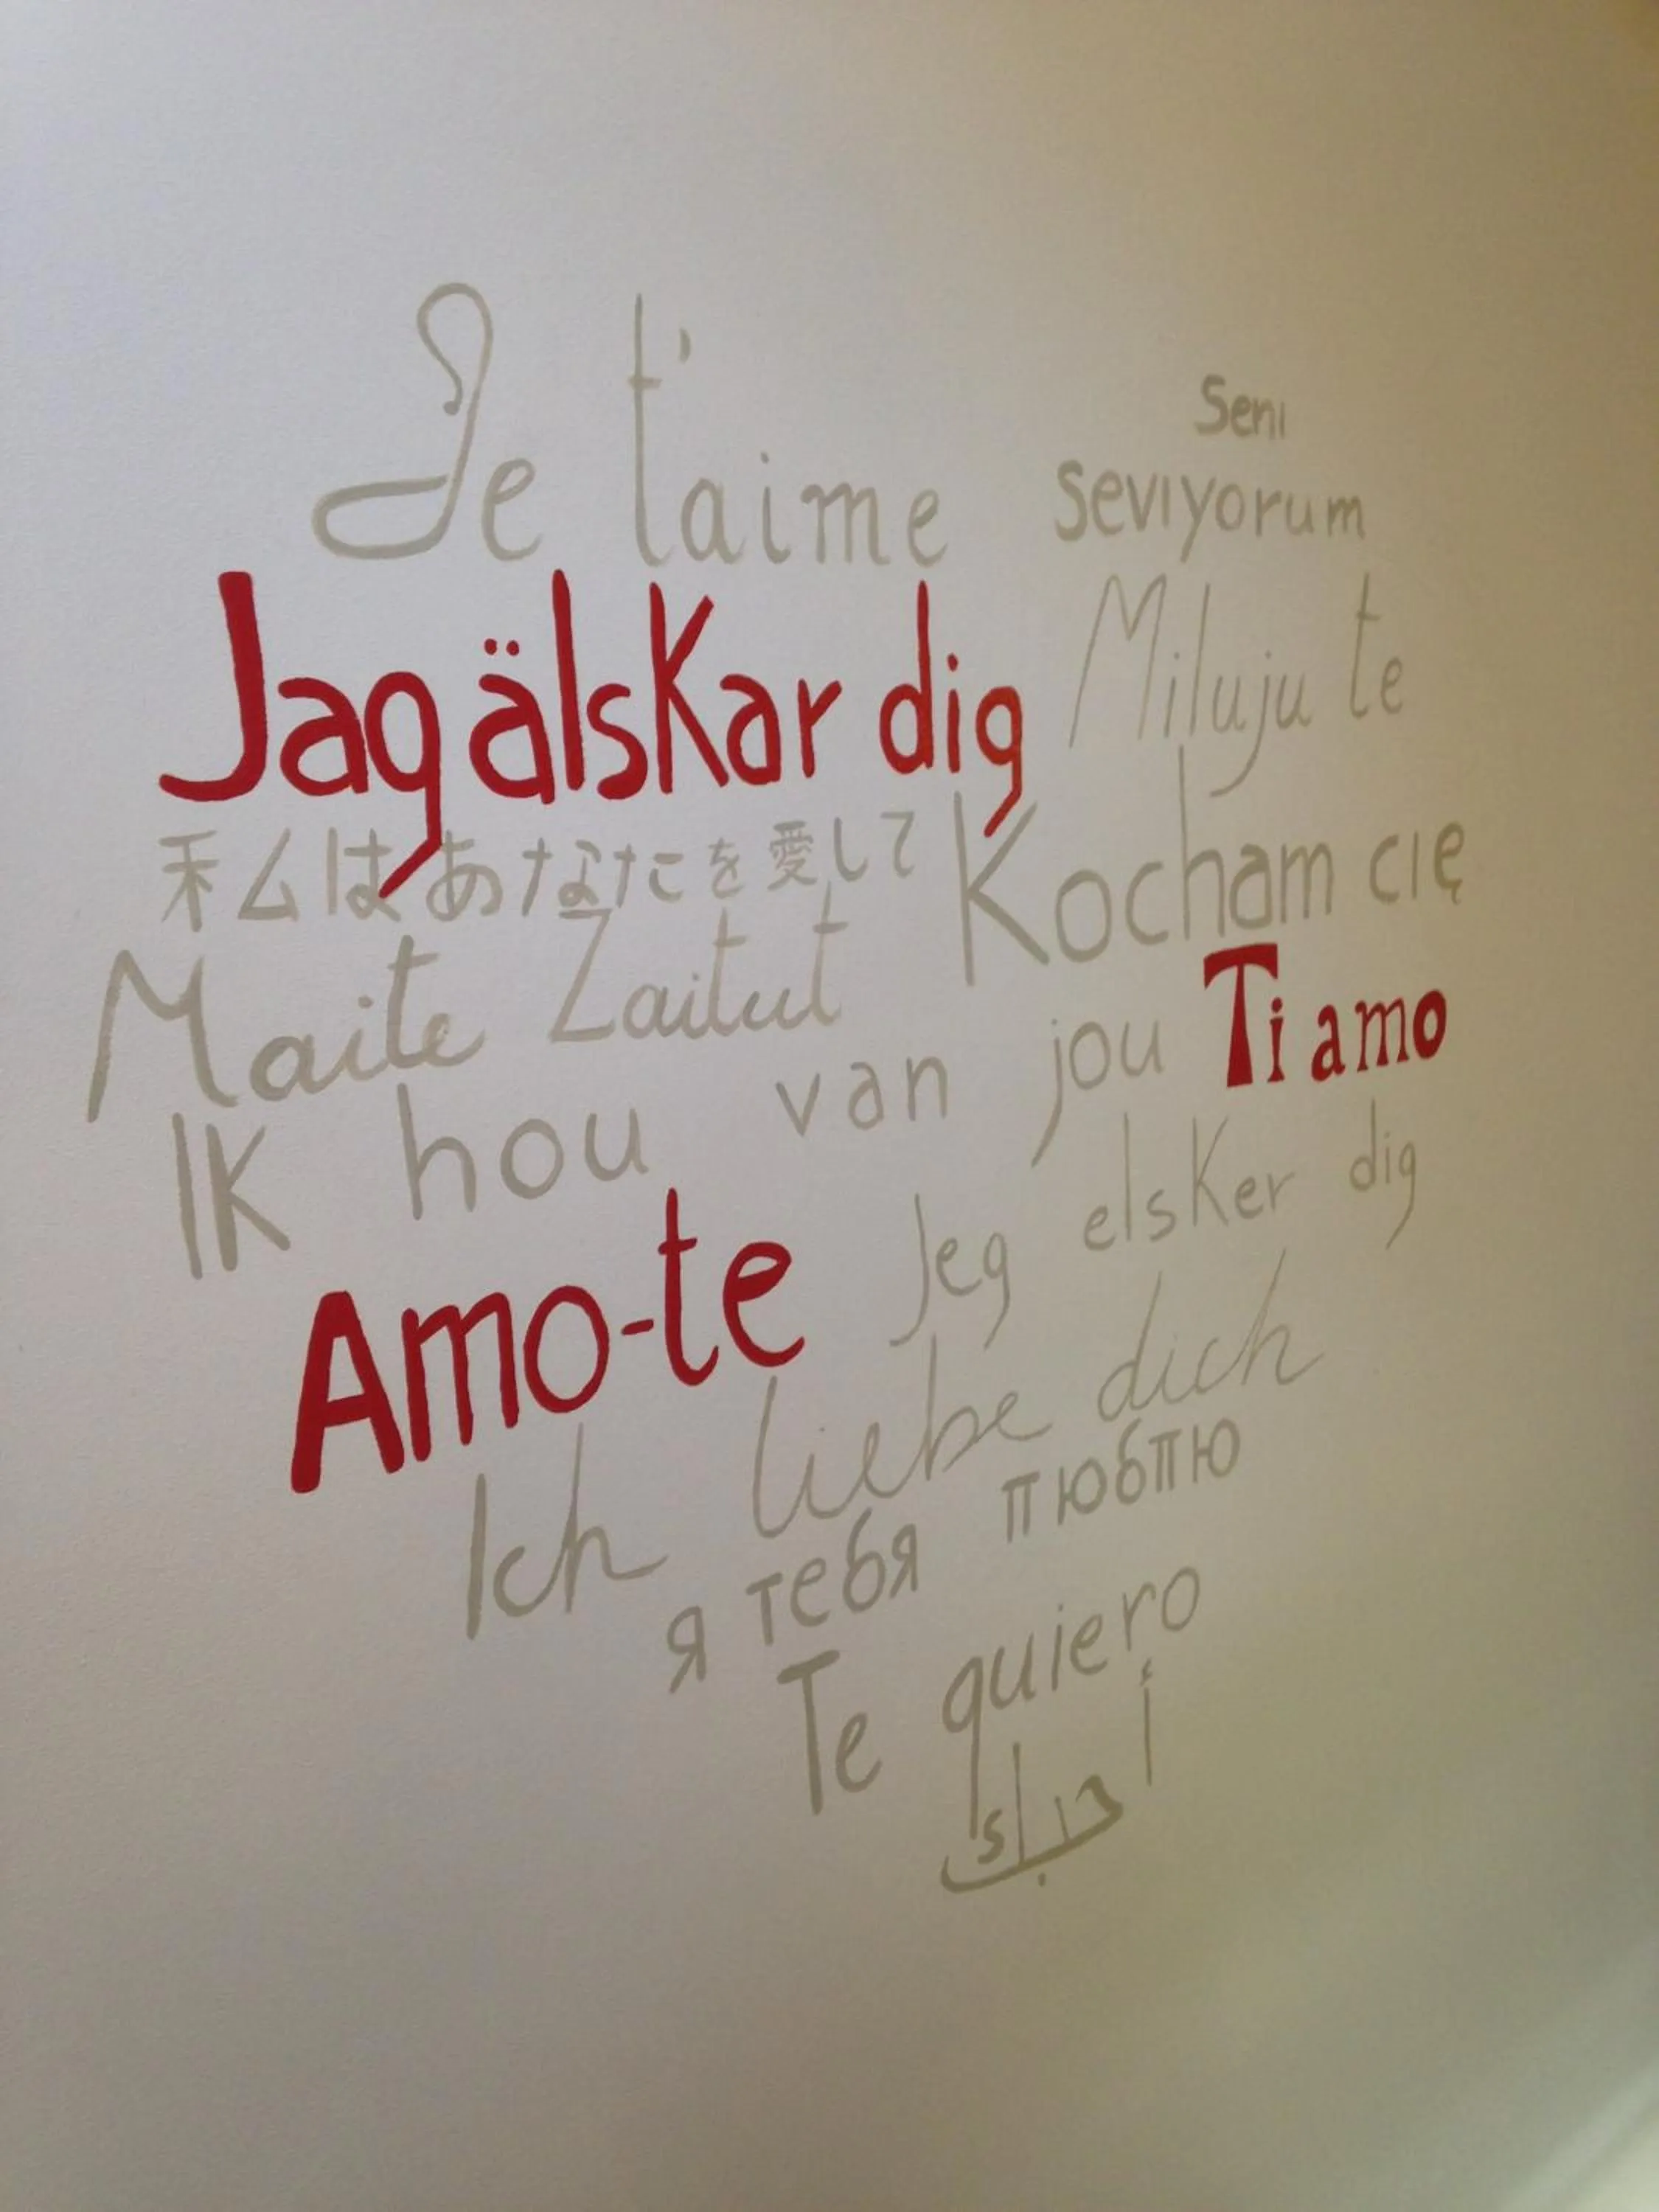 Je t'aime
Seni
seviyorum
Jag älskar dig
Miluju te
私はあなたを愛して
Kocham cię
Maite Zaitut
Ik hou van jou
Ti amo
Amo-te
Jeg elsker dig
Ich liebe dich
я тебя люблю
Te quiero
أحبك